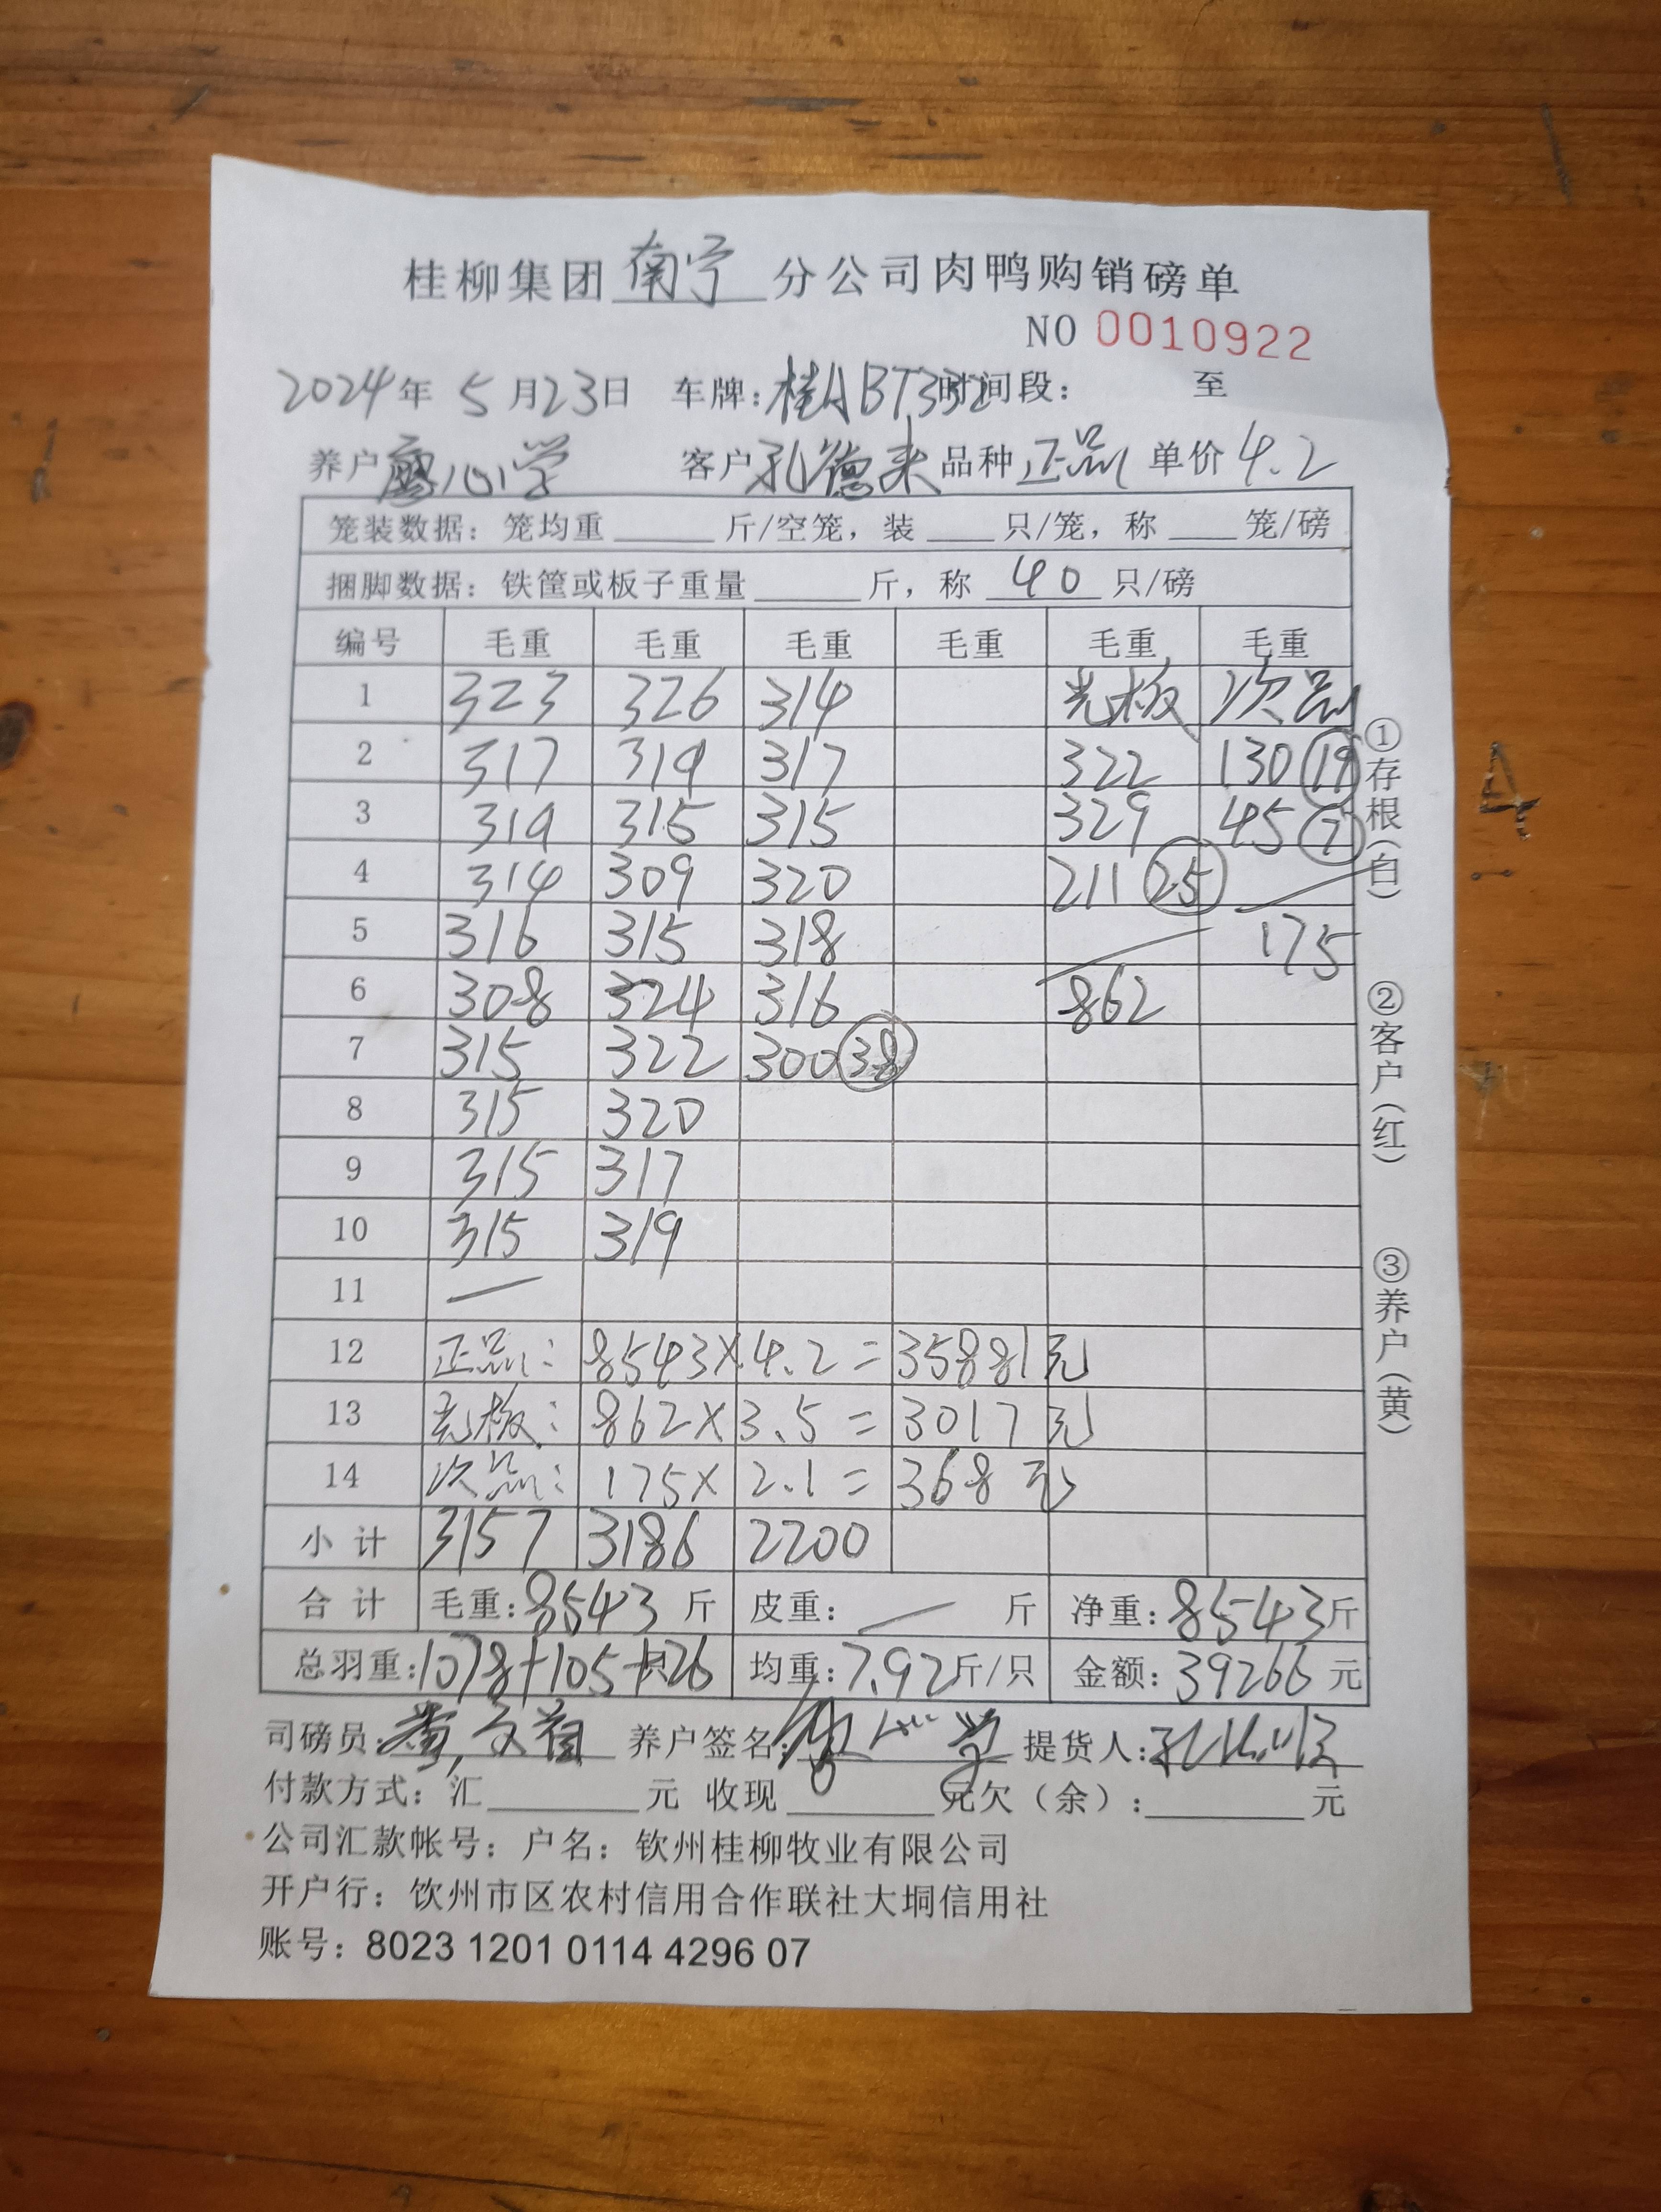 桂柳集团南宁分公司肉鸭购销磅单
NO 0010922
2024年 5月23日 车牌:桂ABT332 时间段: 至
养户廖心学 客户孔德来 品种正品 单价4.2
笼装数据: 笼均重 斤/空笼, 装 只/笼, 称 笼/磅
捆脚数据: 铁筐或板子重量 斤, 称 40 只/磅
编号 毛重 毛重 毛重 毛重 毛重 毛重
1 323 326 314 光板 次品
2 317 319 317 322 130 (19)
3 319 315 315 329 45 (7)
4 314 309 320 211 (25)
5 316 315 318 175
6 308 324 316 862
7 315 322 300 (38)
8 315 320
9 315 317
10 315 319
11 —
12 正品: 8543×4.2=35881元
13 光板: 862×3.5=3017元
14 次品: 175×2.1=368元
小计 3157 3186 2200
合计 毛重:8543斤 皮重: — 斤 净重:8543斤
总羽重:1078+105+26只 均重:7.92斤/只 金额:39266元
司磅员: 养户签名: 提货人:
付款方式: 汇 元 收现 元欠(余): 元
公司汇款帐号: 户名: 钦州桂柳牧业有限公司
开户行: 饮州市区农村信用合作联社大垌信用社
账号: 8023 1201 0114 4296 07
①存根(白) ②客户(红) ③养户(黄)